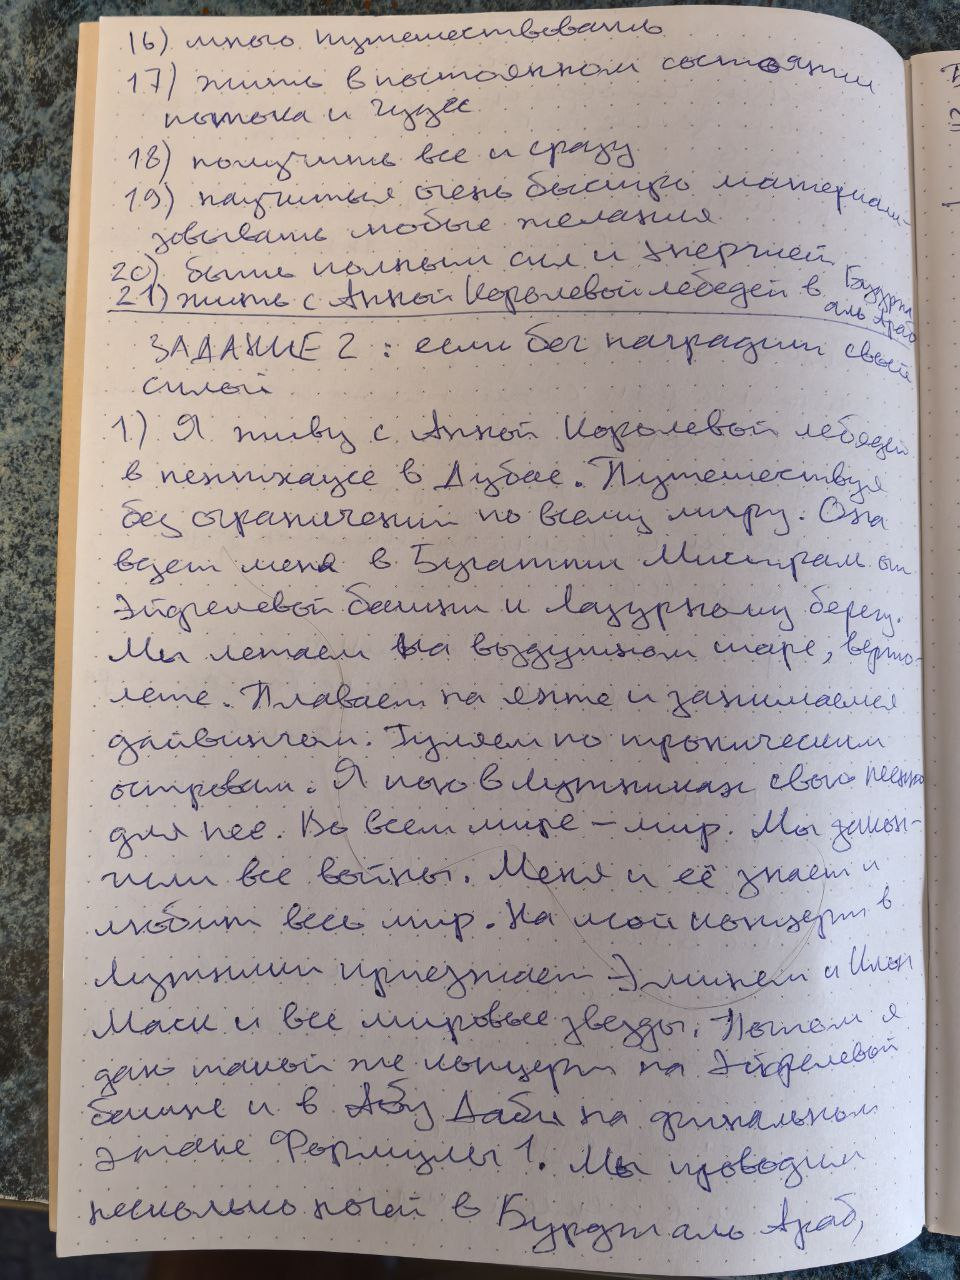 16) много путешествовать
17) жить в постоянном состоянии
потока и чудес
18) получить все и сразу
19) научиться очень быстро материали-
зовывать любые желания
20) быть полным сил и энергией
21) жить с Анной Королевой лебедей в Бурдж
аль Араб
ЗАДАНИЕ 2 : если бы наградили свыше
силой
1) Я живу с Анной Королевой лебедей
в пентхаусе в Дубае. Путешествуя
без ограничений по всему миру. Она
везет меня в Бугатти Мистраль от
Эйфелевой башни к Лазурному берегу.
Мы летаем на воздушном шаре, верто-
лете. Плаваем на яхте и занимаемся
дайвингом. Гуляем по тропическим
островам. Я пою в Лужниках свою песню
для неё. Во всем мире – мир. Мы закон-
чили все войны. Меня и её знает и
любит весь мир. На мой концерт в
Лужники приезжает Эминем и Илон
Маск и все мировые звезды. Потом я
даю такой же концерт на Эйфелевой
башне и в Абу Даби на финальном
этапе Формулы 1. Мы проводим
несколько ночей в Бурдж аль Араб,